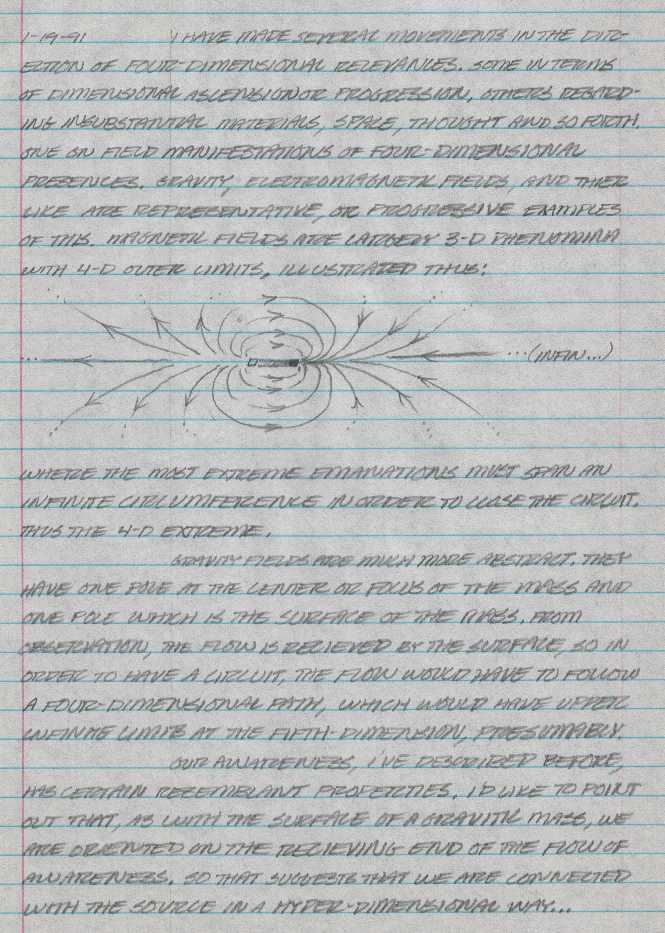 1-19-91 I HAVE MADE SEVERAL MOVEMENTS IN THE DIR-
ECTION OF FOUR-DIMENSIONAL RELEVANCES. SOME IN TERMS
OF DIMENSIONAL ASCENSION OR PROGRESSION, OTHERS REGARD-
ING INSUBSTANTIAL MATERIALS, SPACE, THOUGHT AND SO FORTH.
ONE ON FIELD MANIFESTATIONS OF FOUR-DIMENSIONAL
PRESENCES. GRAVITY, ELECTROMAGNETIC FIELDS, AND THIER
LIKE ARE REPRESENTATIVE, OR PROGRESSIVE EXAMPLES
OF THIS. MAGNETIC FIELDS ARE LARGELY 3-D PHENOMINA
WITH 4-D OUTER LIMITS, ILLUSTRATED THUS:
...(INFIN...)
WHERE THE MOST EXTREME EMANATIONS MUST SPAN AN
INFINITE CIRCUMFERENCE IN ORDER TO CLOSE THE CIRCUIT.
THUS THE 4-D EXTREME.
GRAVITY FIELDS ARE MUCH MORE ABSTRACT. THEY
HAVE ONE POLE AT THE CENTER OR FOCUS OF THE MASS AND
ONE POLE WHICH IS THE SURFACE OF THE MASS. FROM
OBSERVATION, THE FLOW IS RECIEVED BY THE SURFACE, SO IN
ORDER TO HAVE A CIRCUIT, THE FLOW WOULD HAVE TO FOLLOW
A FOUR-DIMENSIONAL PATH, WHICH WOULD HAVE UPPER
INFINITE LIMITS AT THE FIFTH-DIMENSION, PRESUMABLY.
OUR AWARENESS, I'VE DESCRIBED BEFORE,
HAS CERTAIN RESEMBLANT PROPERTIES. I'D LIKE TO POINT
OUT THAT, AS WITH THE SURFACE OF A GRAVITIC MASS, WE
ARE ORIENTED ON THE RECIEVING END OF THE FLOW OF
AWARENESS. SO THAT SUGGESTS THAT WE ARE CONNECTED
WITH THE SOURCE IN A HYPER-DIMENSIONAL WAY...